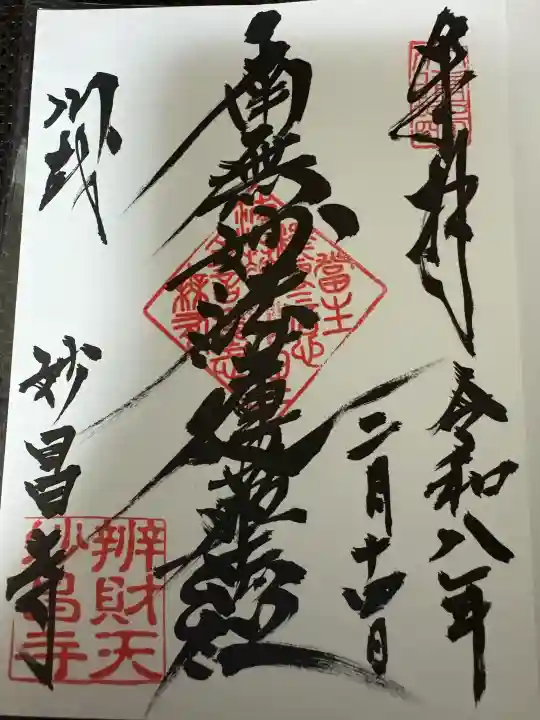 奉拝
令和八年
二月十四日
南無妙法蓮華経
川越
妙昌寺
辨財天
妙昌寺